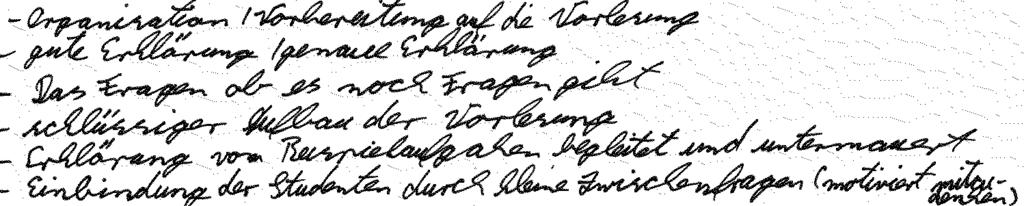 - Organisation / Vorbereitung auf die Vorlesung
- gute Erklärung / genaue Erklärung
- Das Fragen ob es noch Fragen gibt
- schlüssiger Aufbau der Vorlesung
- Erklärung von Beispielaufgaben begleitet und untermauert
- Einbindung der Studenten durch kleine Zwischenfragen (motiviert mitzu-
denken)